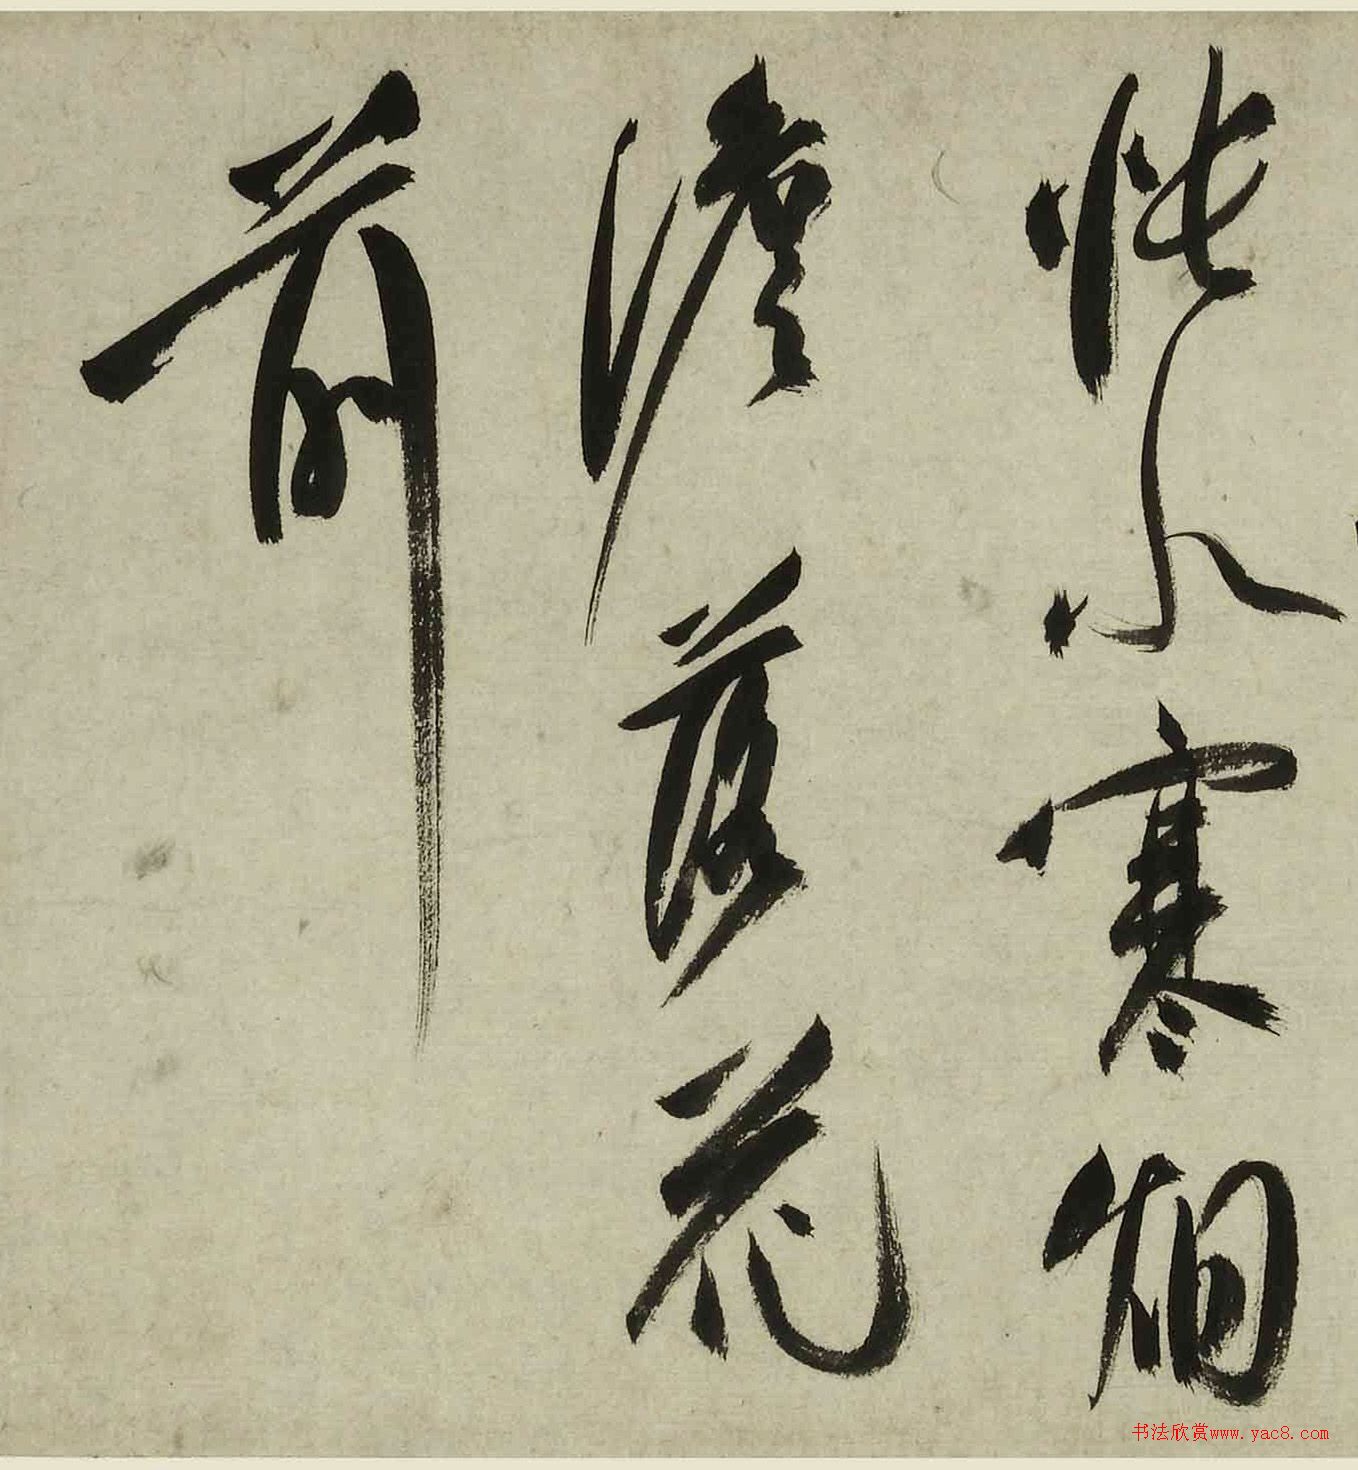 悵水寒烟
澹落花
前
书法欣赏www.yac8.com